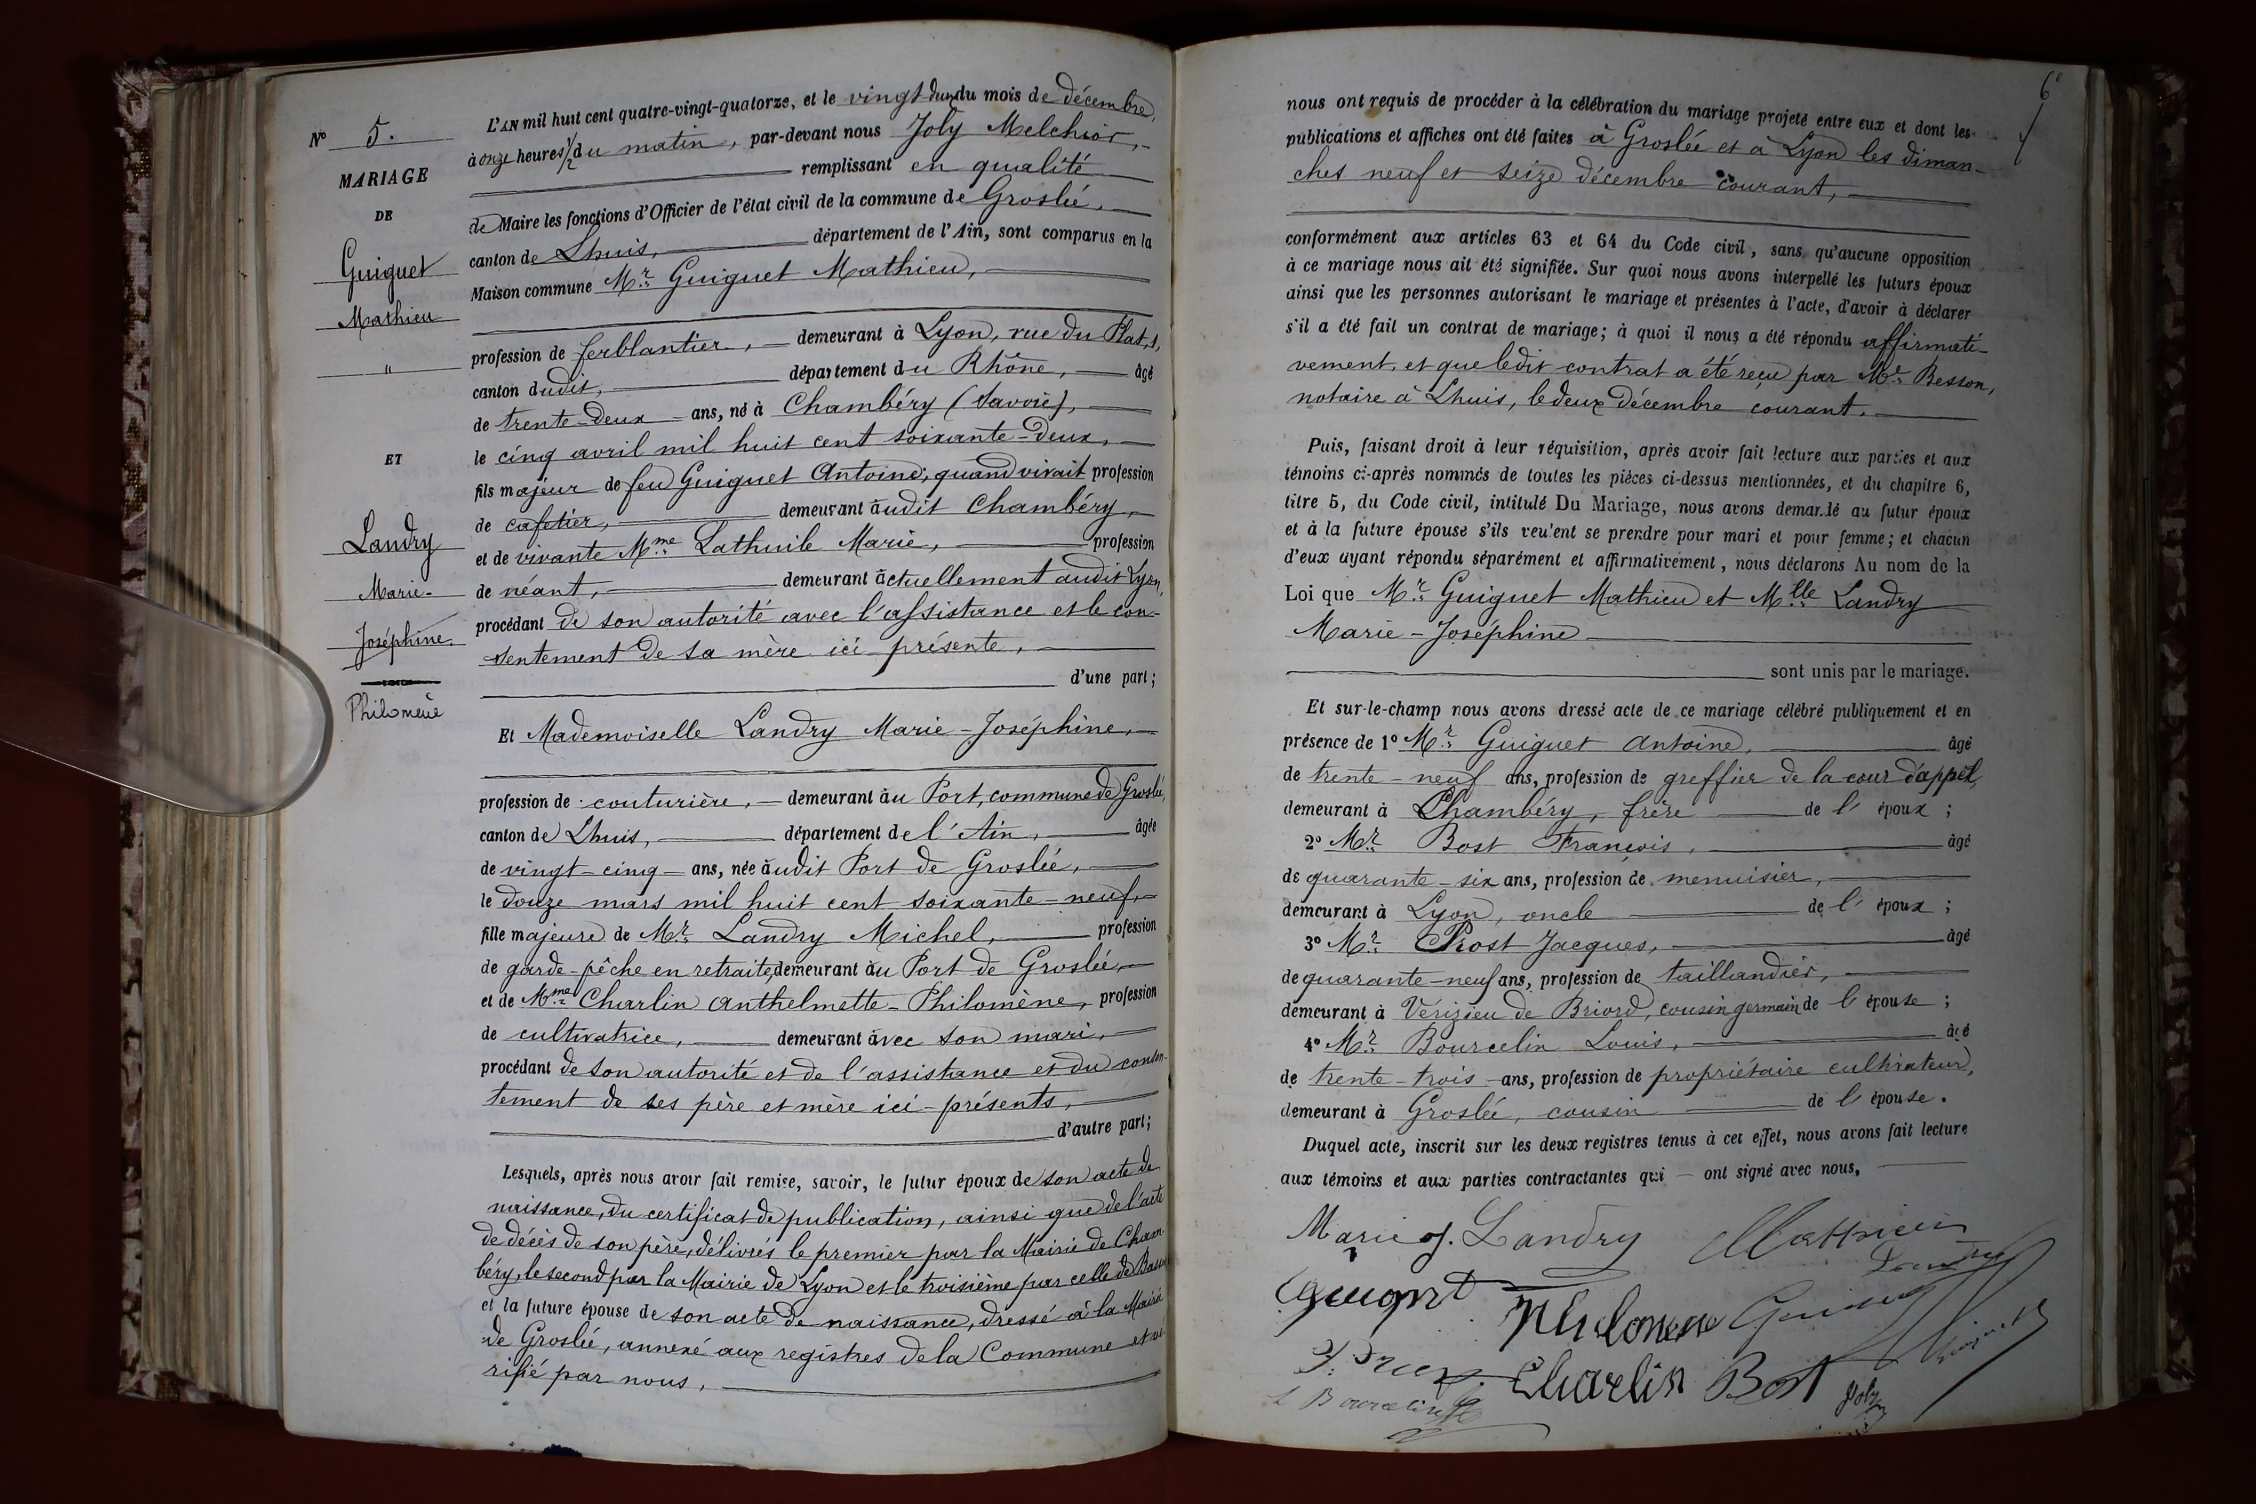 N° 5.
MARIAGE
DE
Guiguet
Mathieu
"
ET
Landry
Marie-
Joséphine.
Philomène
L'AN mil huit cent quatre-vingt-quatorze, et le vingt deux du mois de décembre,
à onze heures 1/2 du matin, par-devant nous Joly Melchior,
remplissant en qualité
de Maire les fonctions d'Officier de l'état civil de la commune de Groslée,
canton de Lhuis, département de l'Ain, sont comparus en la
Maison commune Mr Guiguet Mathieu,
profession de ferblantier, demeurant à Lyon, rue du Plat, 1,
canton dudit, département du Rhône, âgé
de trente-deux ans, né à Chambéry (Savoie),
le cinq avril mil huit cent soixante-deux,
fils majeur de feu Guiguet Antoine, quand vivait profession
de cafetier, demeurant àudit Chambéry,
et de vivante Mme Lathuile Marie, profession
de néant, demeurant àctuellement audit Lyon,
procédant de son autorité avec l'assistance et le con-
sentement de sa mère ici présente,
d'une part;
Et Mademoiselle Landry Marie-Joséphine,
profession de couturière, demeurant àu Port, commune de Groslée,
canton de Lhuis, département de l'Ain, âgée
de vingt-cinq ans, née àudit Port de Groslée,
le douze mars mil huit cent soixante-neuf,
fille majeure de Mr Landry Michel, profession
de garde-pêche en retraite, demeurant àu Port de Groslée,
et de Mme Charlin Anthelmette-Philomène, profession
de cultivatrice, demeurant àvec son mari,
procédant de son autorité et de l'assistance et du consen-
tement de ses père et mère ici-présents,
d'autre part;
Lesquels, après nous avoir fait remise, savoir, le futur époux de son acte de
naissance, du certificat de publication, ainsi que de l'acte
de décès de son père, délivrés le premier par la Mairie de Cham-
béry, le second par la Mairie de Lyon et le troisième par celle de
et la future épouse de son acte de naissance, dressé à la Mairie
de Groslée, annexé aux registres de la Commune et vé-
rifié par nous,
6
nous ont requis de procéder à la célébration du mariage projeté entre eux et dont les
publications et affiches ont été faites à Groslée et à Lyon les diman-
ches neuf et seize décembre courant,
conformément aux articles 63 et 64 du Code civil, sans qu'aucune opposition
à ce mariage nous ait été signifiée. Sur quoi nous avons interpellé les futurs époux
ainsi que les personnes autorisant le mariage et présentes à l'acte, d'avoir à déclarer
s'il a été fait un contrat de mariage; à quoi il nous a été répondu affirmati-
vement, et que ledit contrat a été reçu par Me Besson,
notaire à Lhuis, le deux décembre courant.
Puis, faisant droit à leur réquisition, après avoir fait lecture aux parties et aux
témoins ci-après nommés de toutes les pièces ci-dessus mentionnées, et du chapitre 6,
titre 5, du Code civil, intitulé Du Mariage, nous avons demandé au futur époux
et à la future épouse s'ils veulent se prendre pour mari et pour femme; et chacun
d'eux ayant répondu séparément et affirmativement, nous déclarons Au nom de la
Loi que Mr Guiguet Mathieu et Mlle Landry
Marie-Joséphine
sont unis par le mariage.
Et sur-le-champ nous avons dressé acte de ce mariage célébré publiquement et en
présence de 1° Mr Guiguet Antoine, âgé
de trente-neuf ans, profession de greffier de la cour d'appel,
demeurant à Chambéry, frère de l'époux;
2° Mr Bost François, âgé
de quarante-six ans, profession de menuisier,
demeurant à Lyon, oncle de l'époux;
3° Mr Prost Jacques, âgé
de quarante-neuf ans, profession de taillandier,
demeurant à Vérizieu de Briord, cousin germain de l'épouse;
4° Mr Bourcelin Louis, âgé
de trente-trois ans, profession de propriétaire cultivateur,
demeurant à Groslée, cousin de l'épouse.
Duquel acte, inscrit sur les deux registres tenus à cet effet, nous avons fait lecture
aux témoins et aux parties contractantes qui ont signé avec nous,
Marie J. Landry Mathieu
Guiguet Landry
Philomene Guiguet
Charlin Bost
L Bourcelin Joly